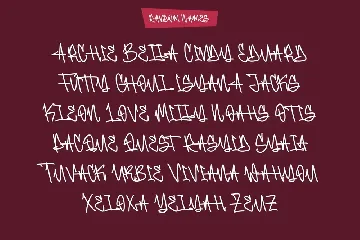 Random Names
Archie Bella Cindy Edward
Futty Ghoul Isyana Jacks
Kleon Love Milly Noahs Otis
Pacque Quest Rashid Syala
Tuvack Urbie Viviana Wahyou
Xeloxa Yeldah Zenz